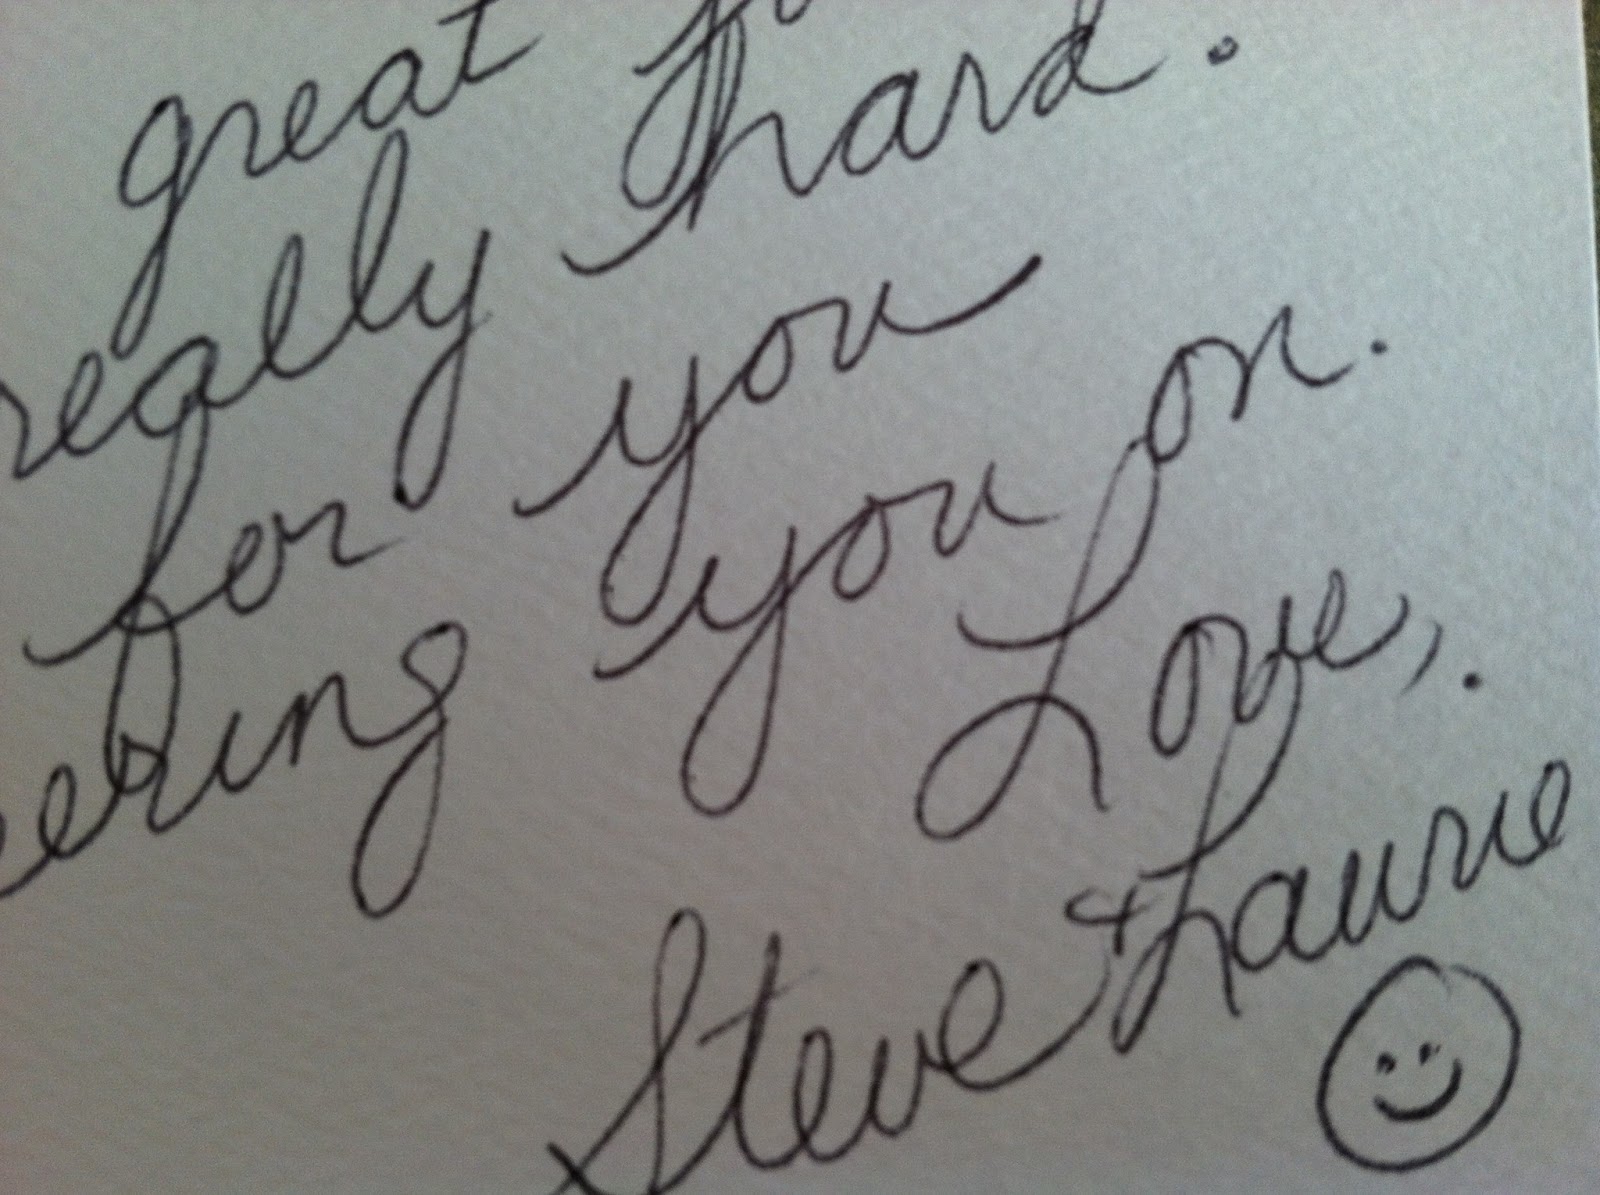 great
really hard.
for you
ering you on.
Love,.
Steve & Laurie